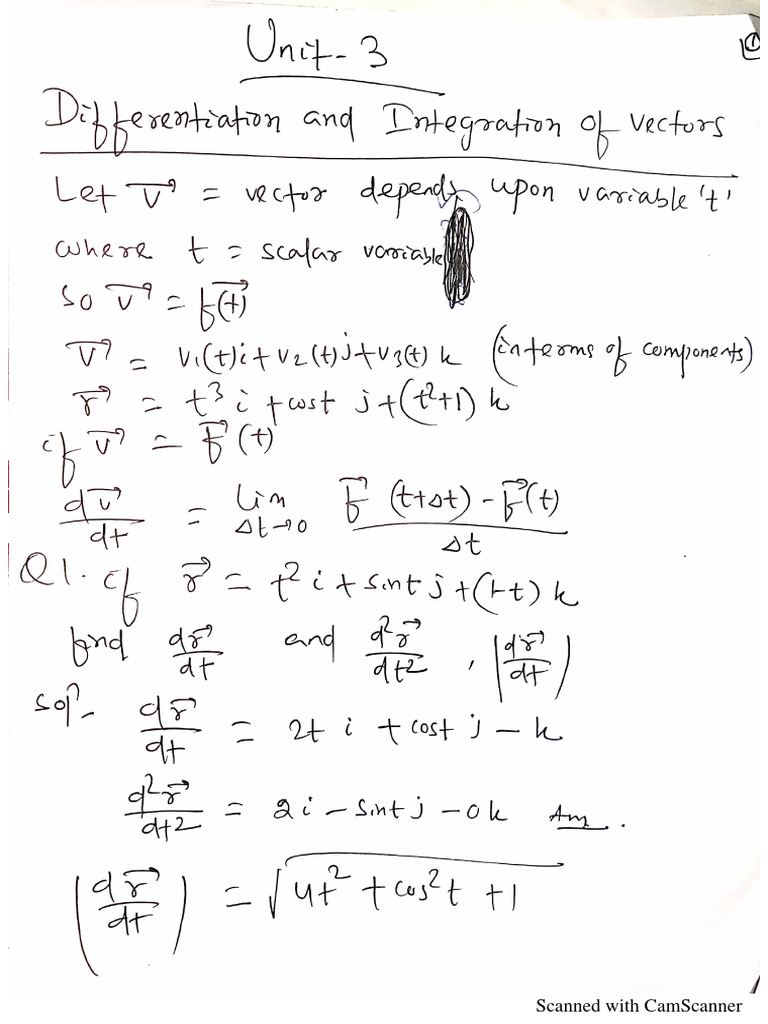 Unit-3
①
Differentiation and Integration of vectors
Let v⃗ = vector depends upon variable 't'
where t = scalar variable
so v⃗ = f⃗(t)
v⃗ = v₁(t)i + v₂(t)j + v₃(t) k (in terms of components)
r⃗ = t³ i + cost j + (t²+1) k
if v⃗ = F⃗(t)
dv⃗/dt = lim Δt→0 F⃗(t+Δt) - F⃗(t) / Δt
Q1. if r⃗ = t² i + sint j + (1-t) k
find dr⃗/dt and d²r⃗/dt², |dr⃗/dt|
solⁿ- dr⃗/dt = 2t i + cost j - k
d²r⃗/dt² = 2i - sint j - 0k Ans.
|dr⃗/dt| = √4t² + cos²t + 1
Scanned with CamScanner